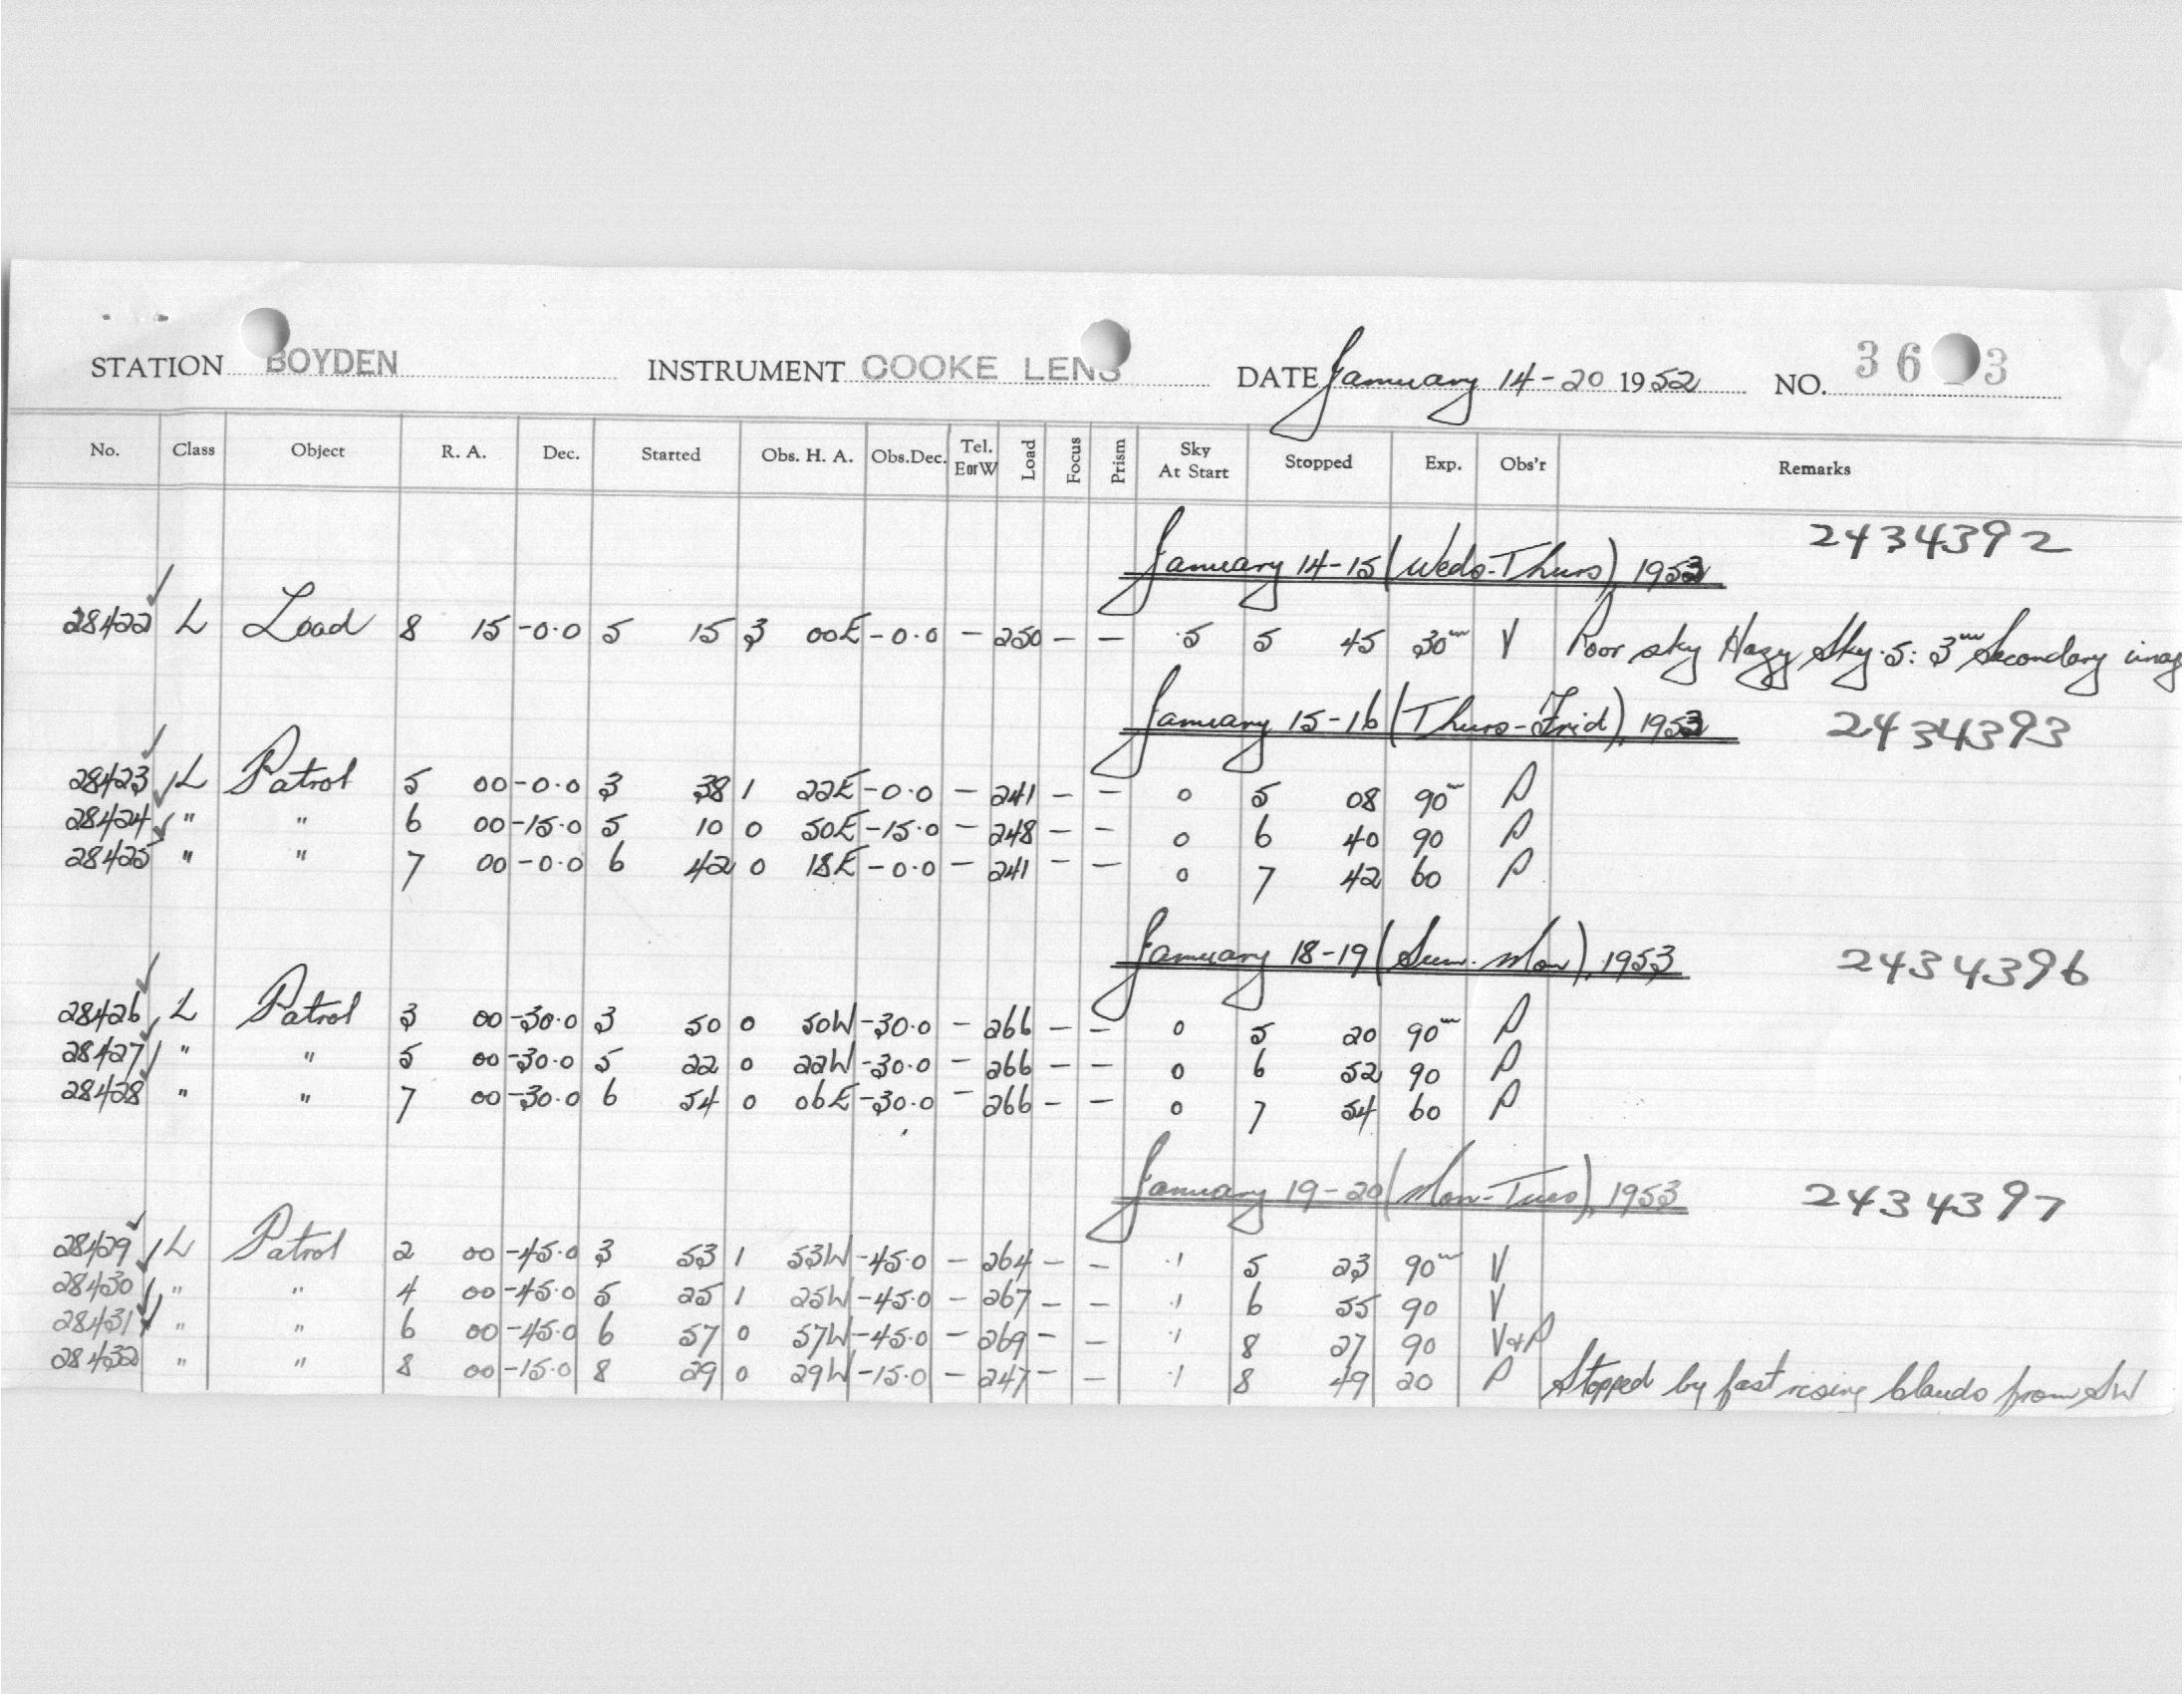 STATION BOYDEN INSTRUMENT COOKE LENS DATE January 14-20 1952 NO. 36 3
No. Class Object R. A. Dec. Started Obs. H. A. Obs.Dec. Tel. E or W Load Focus Prism Sky At Start Stopped Exp. Obs'r Remarks
January 14-15 (Weds-Thurs), 1953 2434392
28422 L Load 8 15 -0.0 5 15 3 00E -0.0 - 250 - - .5 5 45 30m V Poor sky Hazy Sky .5: 3m Secondary imag
January 15-16 (Thurs-Frid), 1953 2434393
28423 L Patrol 5 00 -0.0 3 38 1 22E -0.0 - 241 - - 0 5 08 90m P
28424 " " 6 00 -15.0 5 10 0 50E -15.0 - 248 - - 0 6 40 90 P
28425 " " 7 00 -0.0 6 42 0 18E -0.0 - 241 - - 0 7 42 60 P
January 18-19 (Sun.-Mon), 1953 2434396
28426 L Patrol 3 00 -30.0 3 50 0 50W -30.0 - 266 - - 0 5 20 90m P
28427 " " 5 00 -30.0 5 22 0 22W -30.0 - 266 - - 0 6 52 90 P
28428 " " 7 00 -30.0 6 54 0 06E -30.0 - 266 - - 0 7 54 60 P
January 19-20 (Mon-Tues), 1953 2434397
28429 L Patrol 2 00 -45.0 3 53 1 53W -45.0 - 264 - - .1 5 23 90m V
28430 " " 4 00 -45.0 5 25 1 25W -45.0 - 267 - - .1 6 55 90 V
28431 " " 6 00 -45.0 6 57 0 57W -45.0 - 269 - - .1 8 27 90 V+P
28432 " " 8 00 -15.0 8 29 0 29W -15.0 - 247 - - .1 8 49 20 P Stopped by fast rising clouds from SW